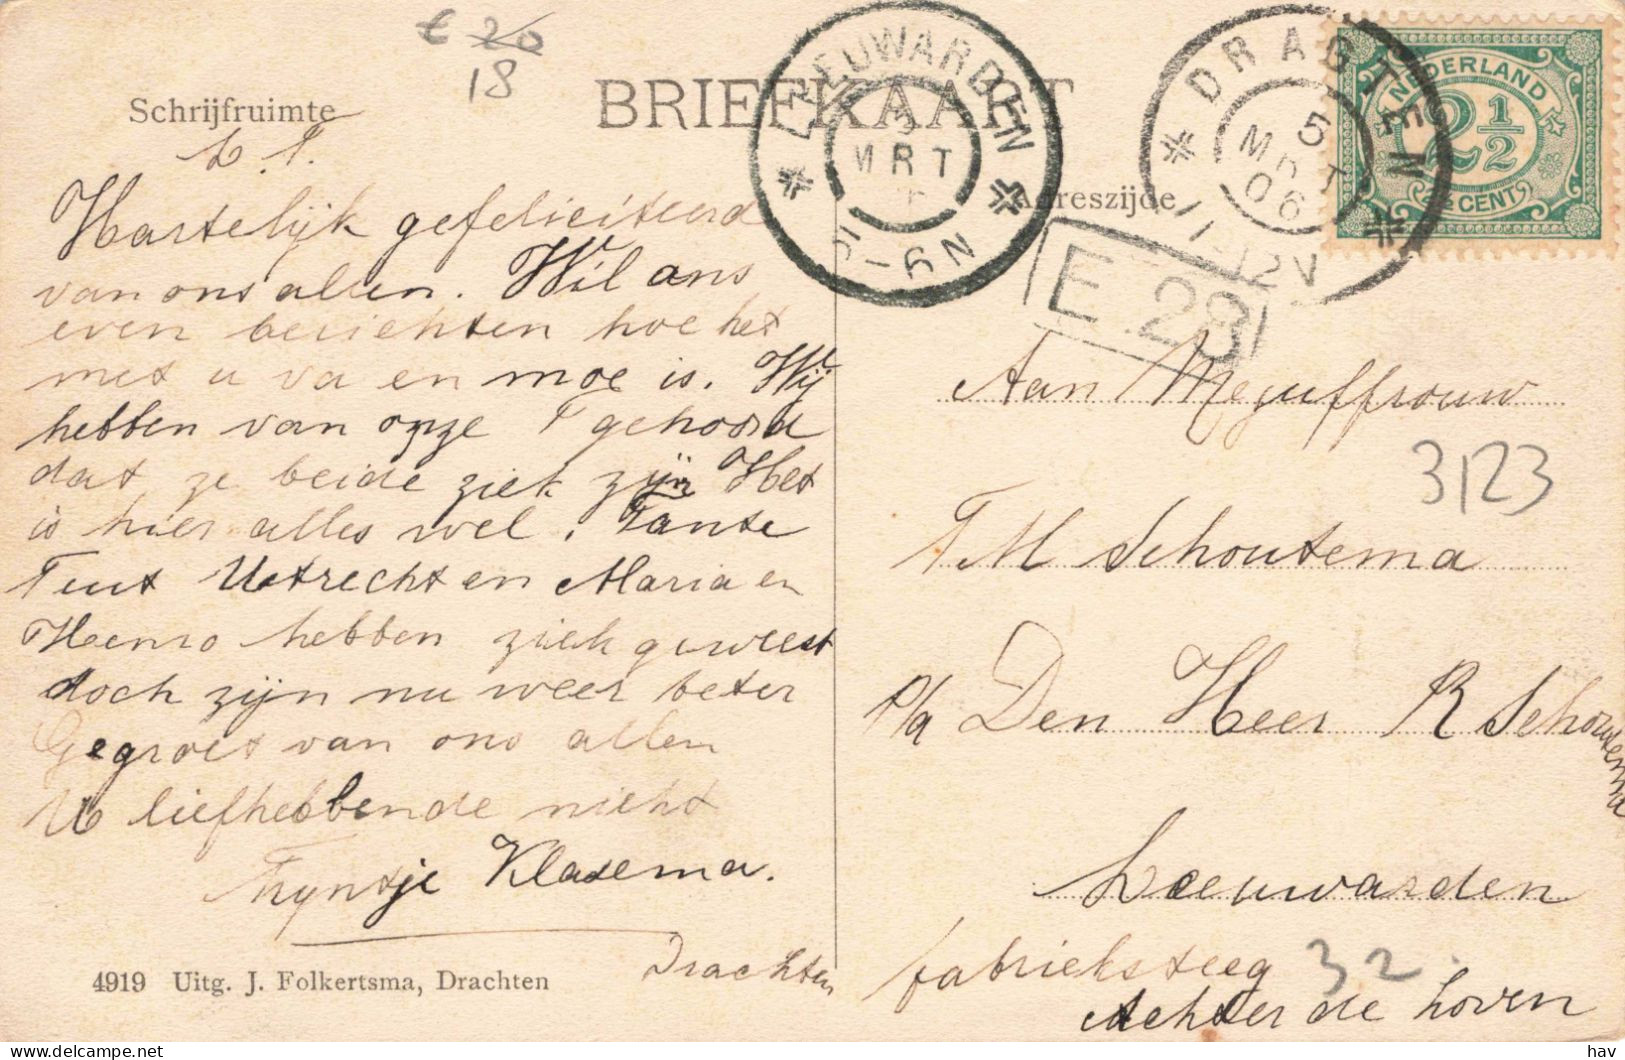 € 20
18
BRIEFKAART
Schrijfruimte
L T.
Hartelijk gefeliciteerd
van ons allen. Wil ons
even berichten hoe het
met u va en moe is. Wij
hebben van opze T gehoord
dat ze beide ziek zijn Het
is hier alles wel. Tante
Teut Uetrecht en Maria en
Hemro hebben ziek geweest
doch zijn nu weer beter
Gegroet van ons allen
U liefhebbende nicht
Tryntje Klasema.
Drachten
4919 Uitg. J. Folkertsma, Drachten
LEEUWARDEN
5
MRT
5-6N
DRAGTEN
5
MRT
06
11-12V
NEDERLAND
2½
CENT
Adreszijde
E 23
Aan Mejuffrouw
3123
T M Schoutema
p/a Den Heer R Schoutema
Leeuwarden
fabrieksteeg
32
Achter de hoven
hav